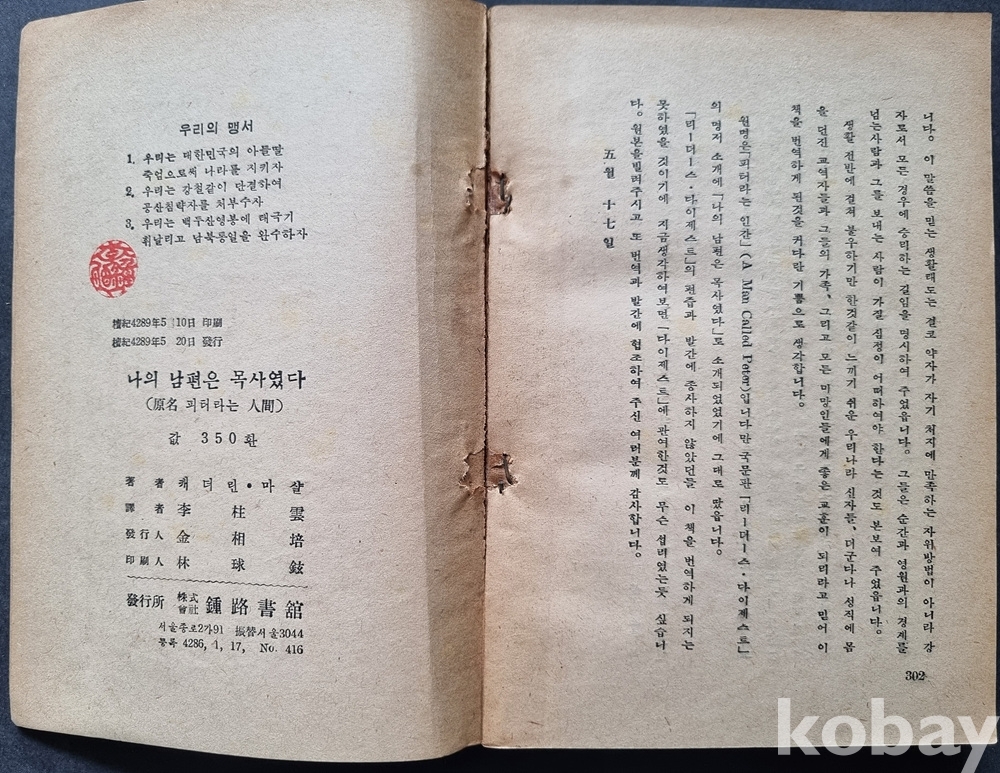 니다。 이 말씀을 믿는 생활태도는 결코 약자가 자기 처지에 만족하는 자위방법이 아니라 강
자로서 모든 경우에 승리하는 길임을 명시하여 주었읍니다。 그들은 순간과 영원과의 경계를
넘는사람과 그를 보내는 사람이 가질 심정이 어떠하여야 한다는 것도 본보여 주었읍니다。
생활 전반에 걸쳐 불우하기만 한것같이 느끼기 쉬운 우리나라 신자들、 더군다나 성직에 몸
을 던진 교역자들과 그들의 가족、 그리고 모든 미망인들에게 좋은 교훈이 되리라고 믿어 이
책을 번역하게 된것을 커다란 기쁨으로 생각합니다。
원명은「피터라는 인간」(A Man Called Peter)입니다만 국문판「리ー더ー스・다이제스트」
의 명저 소개에「나의 남편은 목사였다」로 소개되었었기에 그대로 땄읍니다。
「리ー더ー스・다이제스트」의 편즙과 발간에 종사하지 않았던들 이 책을 번역하게 되지는
못하였을 것이기에 지금생각하여보면「다이제스트」에 관여한것도 무슨 섭리였는듯 싶습니
다。 원본을빌려주시고 또 번역과 발간에 협조하여 주신 여러분께 감사합니다。
五월 十七일
302
우리의 맹서
1. 우리는 대한민국의 아들딸
죽엄으로써 나라를 지키자
2. 우리는 강철같이 단결하여
공산침략자를 처부수자
3. 우리는 백두산영봉에 태극기
휘날리고 남북통일을 완수하자
檀紀4289年5 10日 印刷
檀紀4289年5 20日 發行
나의 남편은 목사였다
(原名 피터라는 人間)
값 350환
著者 캐더린・마샬
譯者 李柱雲
發行人 金相培
印刷人 林球鉉
發行所 株式會社 鍾路書舘
서울종로2가91 振替서울3044
등록 4286, 4, 17, No. 416
kobay